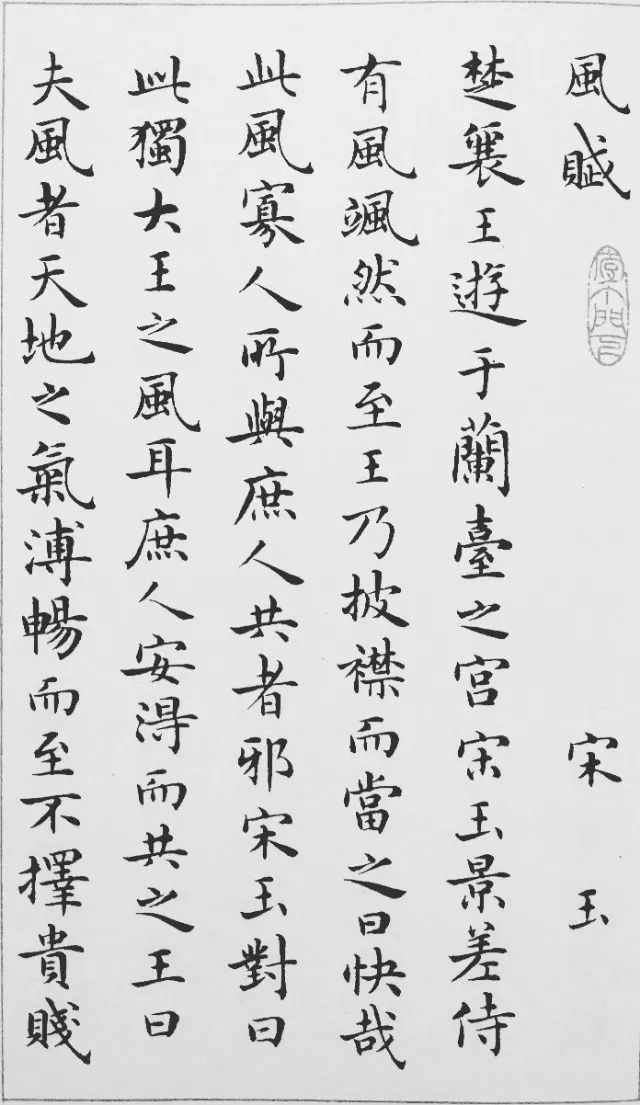 風賦 宋玉
楚襄王遊于蘭臺之宫宋玉景差侍
有風颯然而至王乃披襟而當之曰快哉
此風寡人所與庶人共者邪宋玉對曰
此獨大王之風耳庶人安得而共之王曰
夫風者天地之氣溥暢而至不擇貴賤